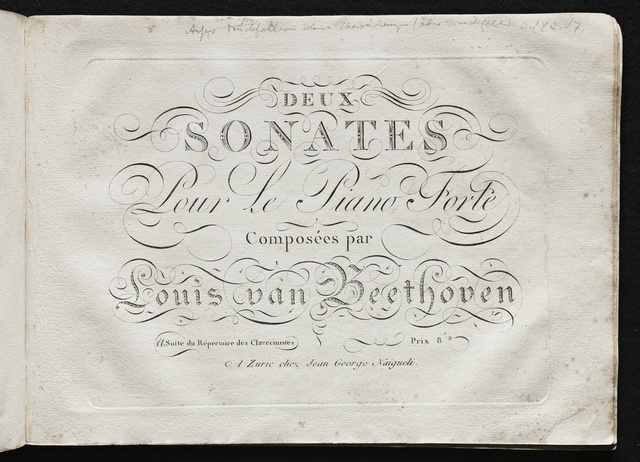 DEUX
SONATES
Pour Le Piano Forte
Composées par
Louis van Beethoven
Suite du Répertoire des Clavecinistes
Prix 8
A Zuric chez Jean George Naigueli.